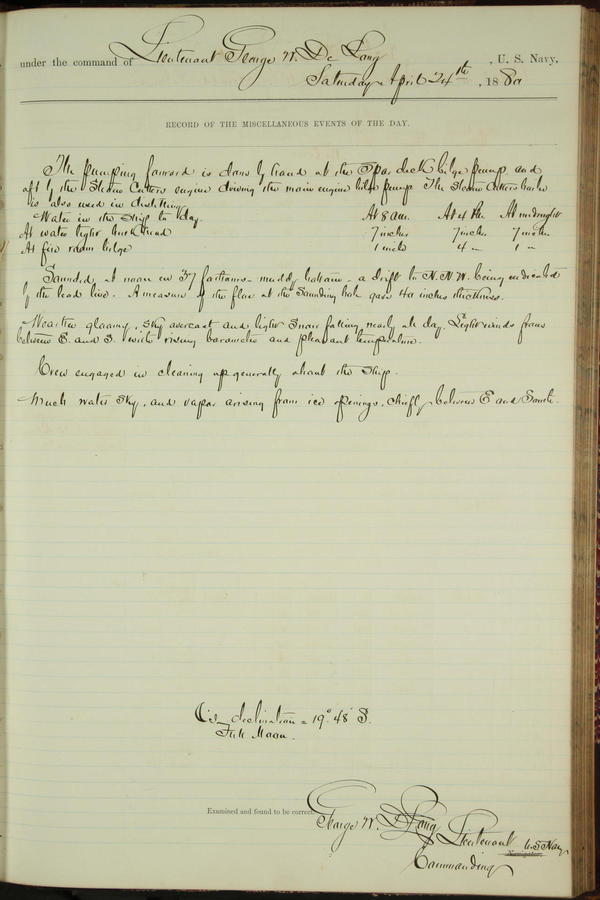 under the command of Lieutenant George W. De Long, U. S. Navy,
Saturday April 24th, 1880
RECORD OF THE MISCELLANEOUS EVENTS OF THE DAY.
The pumping forward is done by hand at the Spar deck bilge pump and
aft by the Steam Cutters engine driving the main engine bilge pump. The Steam Cutters boiler
is also used in distilling.
Water in the Ship to day. At 8 am. At 4 PM. At midnight
At water tight bulkhead 7 inches 7 inches 7 inches
At fire room bilge 1 inch 4 " 1 "
Sounded at noon in 37 fathoms - muddy bottom - a drift to N.N.W. being indicated
by the lead line. A measure of the floe at the Sounding hole gave 40 inches thickness.
Weather gloomy, sky overcast and light Snow falling nearly all day. Light winds from
between E. and S. with rising barometer and pleasant temperature.
Crew engaged in cleaning up generally about the Ship.
Much water sky, and vapor arising from ice openings, chiefly between E and South.
declination = 19° 48' S.
Full Moon.
Examined and found to be correct.
George W. De Long Lieutenant U.S. Navy
Navigator.
Commanding